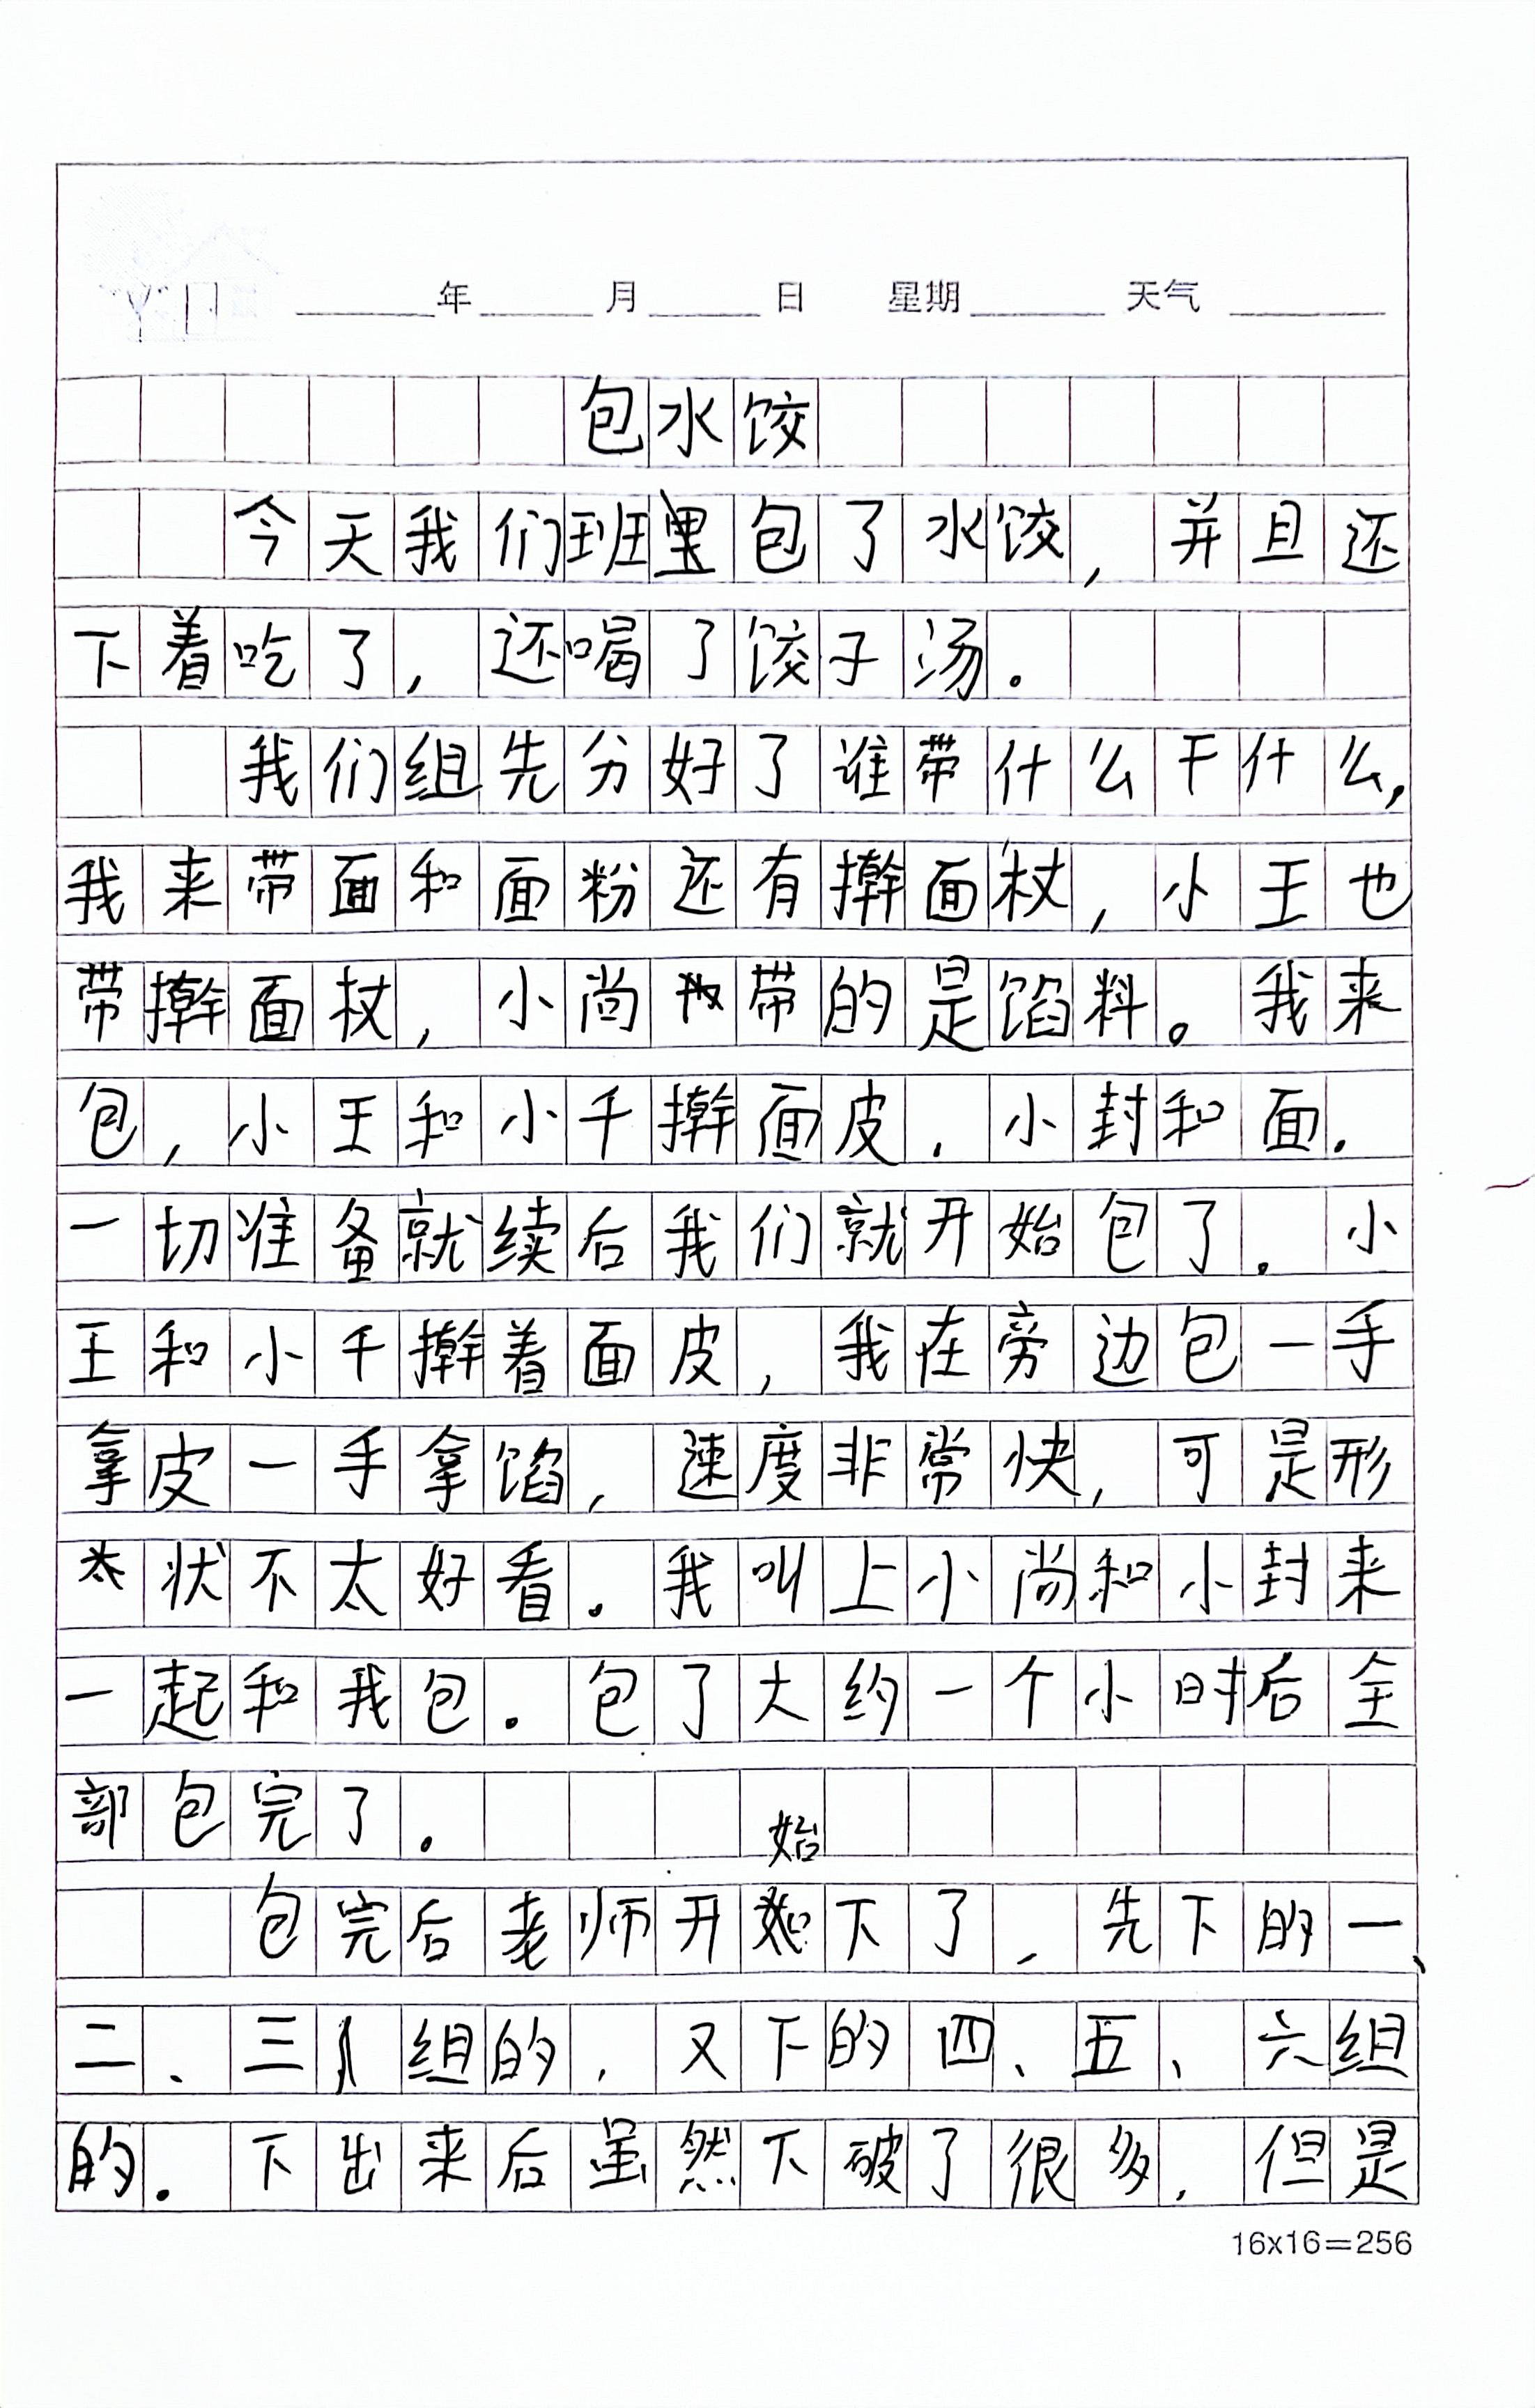 年 月 日 星期 天气
包水饺
今天我们班里包了水饺，并且还
下着吃了，还喝了饺子汤。
我们组先分好了谁带什么干什么，
我来带面和面粉还有擀面杖，小王也
带擀面杖，小尚带的是馅料。我来
包，小王和小千擀面皮，小封和面。
一切准备就续后我们就开始包了。小
王和小千擀着面皮，我在旁边包一手
拿皮一手拿馅，速度非常快，可是形
状不太好看。我叫上小尚和小封来
一起和我包。包了大约一个小时后全
部包完了。
包完后老师开始下了，先下的一、
二、三组的，又下的四、五、六组
的。下出来后虽然下破了很多，但是
16x16=256